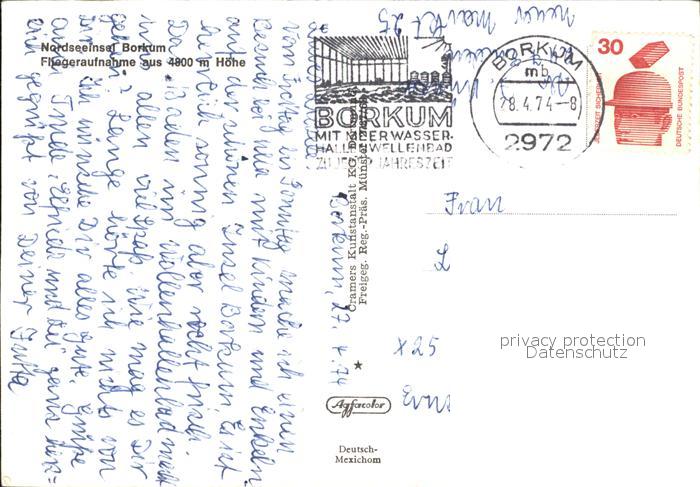 Nordseeinsel Borkum
Fliegeraufnahme aus 4800 m Höhe
BORKUM
MIT MEERWASSER-
HALLEN-WELLENBAD
ZU JEDER JAHRESZEIT
BORKUM
mb
28.4.74-8
2972
30
JEDERZEIT SICHERHEIT
DEUTSCHE BUNDESPOST
Cramers Kunstanstalt KG, Dortmund
Freigeg. Reg.-Präs. Münster
Borkum, 27. 4. 74
Von Freitag bis Sonntag mache ich einen
Besuch mit Kindern und Enkeln
auf der schönen Insel Borkum. Es ist
herrlich sonnig aber recht frisch.
Das Baden im Wellenhallenbad macht
uns allen viel Spaß. Wie mag es Dir
gehen? Lange hörte ich nichts von
Dir. Ich wünsche Dir alles Gute. Grüße
auch und sei ganz herz=
lich gegrüßt von Deiner Jutta
Frau
L
X 25
privacy protection
Datenschutz
Agfacolor
Deutsch-
Mexichom